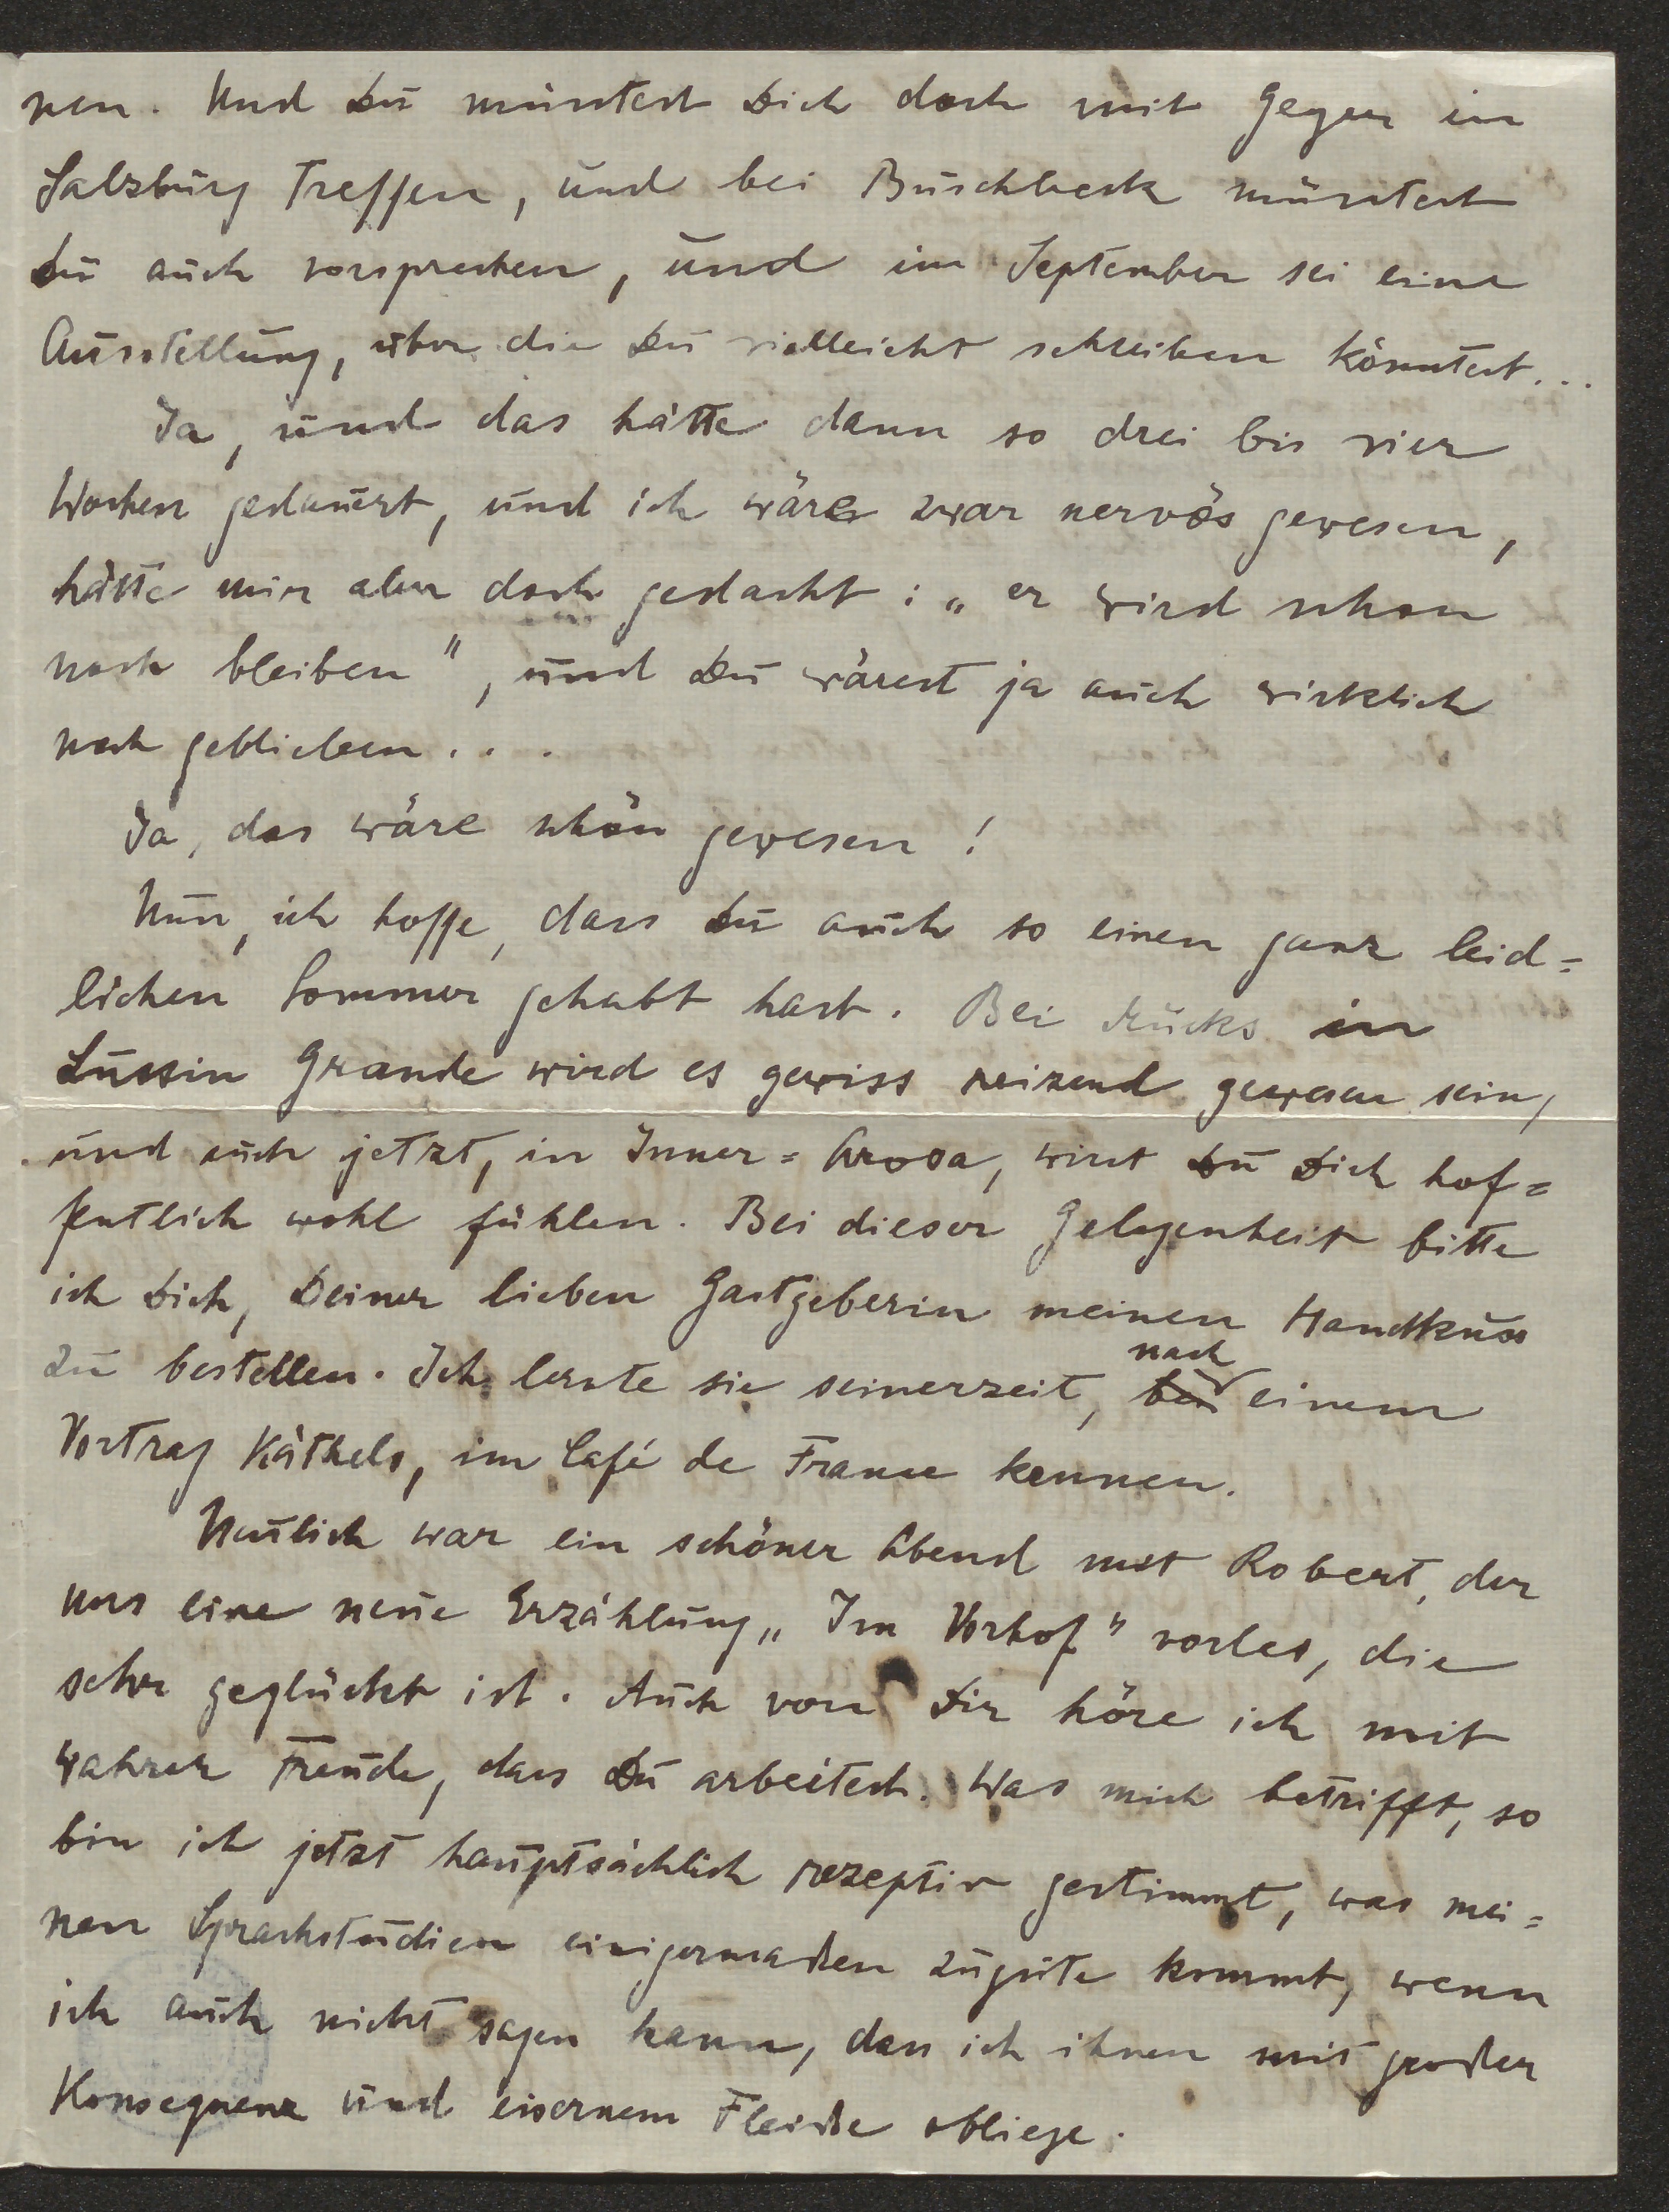 nen. Und Du müsstest Dich doch mit Gegen in
Salzburg treffen, und bei Buschbeck müsstest
Du auch vorsprechen, und im September sei eine
Ausstellung, über die Du vielleicht schreiben könntest...
Ja, und das hätte dann so drei bis vier
Wochen gedauert, und ich wäre zwar nervös gewesen,
hätte mir aber doch gedacht: „er wird schon
noch bleiben", und Du wärest ja auch wirklich
noch geblieben....
Ja, das wäre schön gewesen!
Nun, ich hoffe, dass Du auch so einen ganz leid=
lichen Sommer gehabt hast. Bei Rücks in
Lussin Grande wird es gewiss reizend gewesen sein,
und auch jetzt, in Inner=Arosa, wirst Du Dich hof=
fentlich wohl fühlen. Bei dieser Gelegenheit bitte
ich Dich, Deiner lieben Gastgeberin meinen Handkuss
zu bestellen. Ich lernte sie seinerzeit, nach einem
Vortrag Käthels, im Café de France kennen.
Neulich war ein schöner Abend mit Robert, der
uns eine neue Erzählung „Im Vorhof" vorlas, die
sehr geglückt ist. Auch von Dir höre ich mit
wahrer Freude, dass Du arbeitest. Was mich betrifft, so
bin ich jetzt hauptsächlich rezeptiv gestimmt, was mei=
nen Sprachstudien einigermaßen zugute kommt, wenn
ich auch nicht sagen kann, dass ich ihnen mit großer
Konsequenz und eisernem Fleiße obliege.